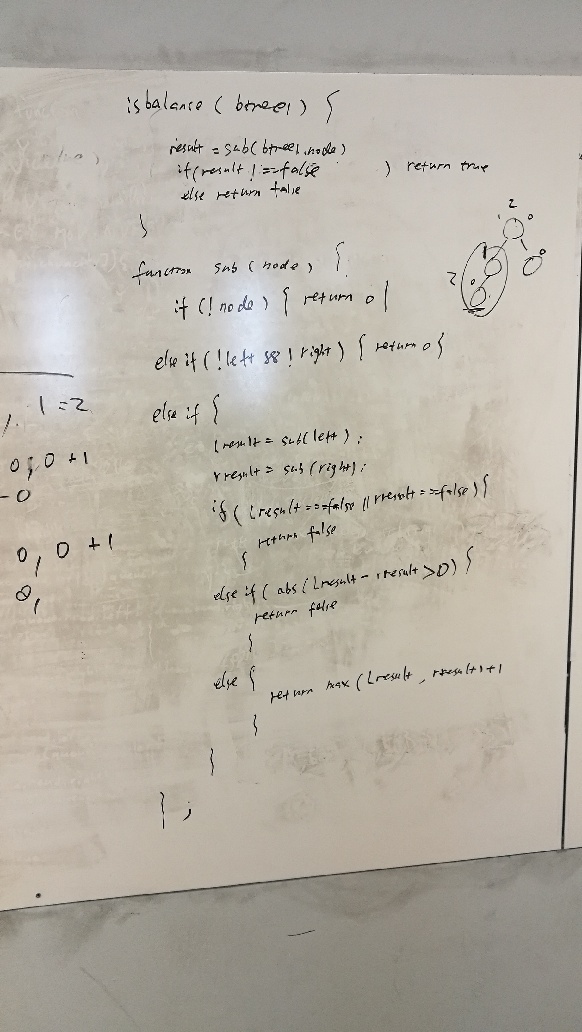 isbalance ( btree1 ) {
result = sub( btree1.node)
if(result !==false ) return true
else return false
}
function sub ( node ) {
if (! node ) { return 0 }
else if ( ! left && ! right ) { return 0 }
else if {
lresult = sub(left) ;
rresult = sub (right) ;
if ( lresult ===false || rresult ===false ) {
return false
}
else if ( abs ( lresult - rresult >0 ) {
return false
}
else {
return max ( lresult , rresult)+1
}
}
} ;
2
1 0
1 0
2 0
1 =2
0, 0 +1
-0
0, 0 +1
0,